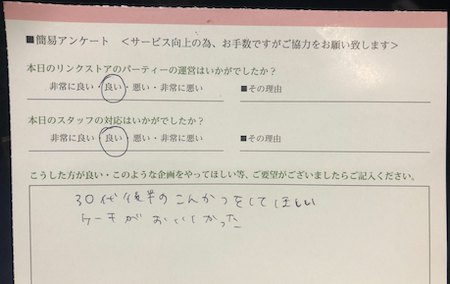 ■簡易アンケート ＜サービス向上の為、お手数ですがご協力をお願い致します＞
本日のリンクストアのパーティーの運営はいかがでしたか？
非常に良い・良い・悪い・非常に悪い ■その理由
本日のスタッフの対応はいかがでしたか？
非常に良い・良い・悪い・非常に悪い ■その理由
こうした方が良い・このような企画をやってほしい等、ご要望がございましたらご記入ください。
30代後半のこんかつをしてほしい
ケーキがおいしかった